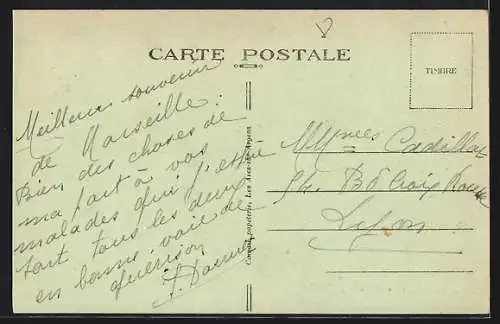 CARTE POSTALE
TIMBRE
Meilleur souvenir
de Marseille.
Bien des choses de
ma part à vos
malades qui j'espère
sont tous les deux
en bonne voie de
guérison
papeterie, Les Arcs-sur-Argens
Cadillac
Bd Croix Rousse
Lyon